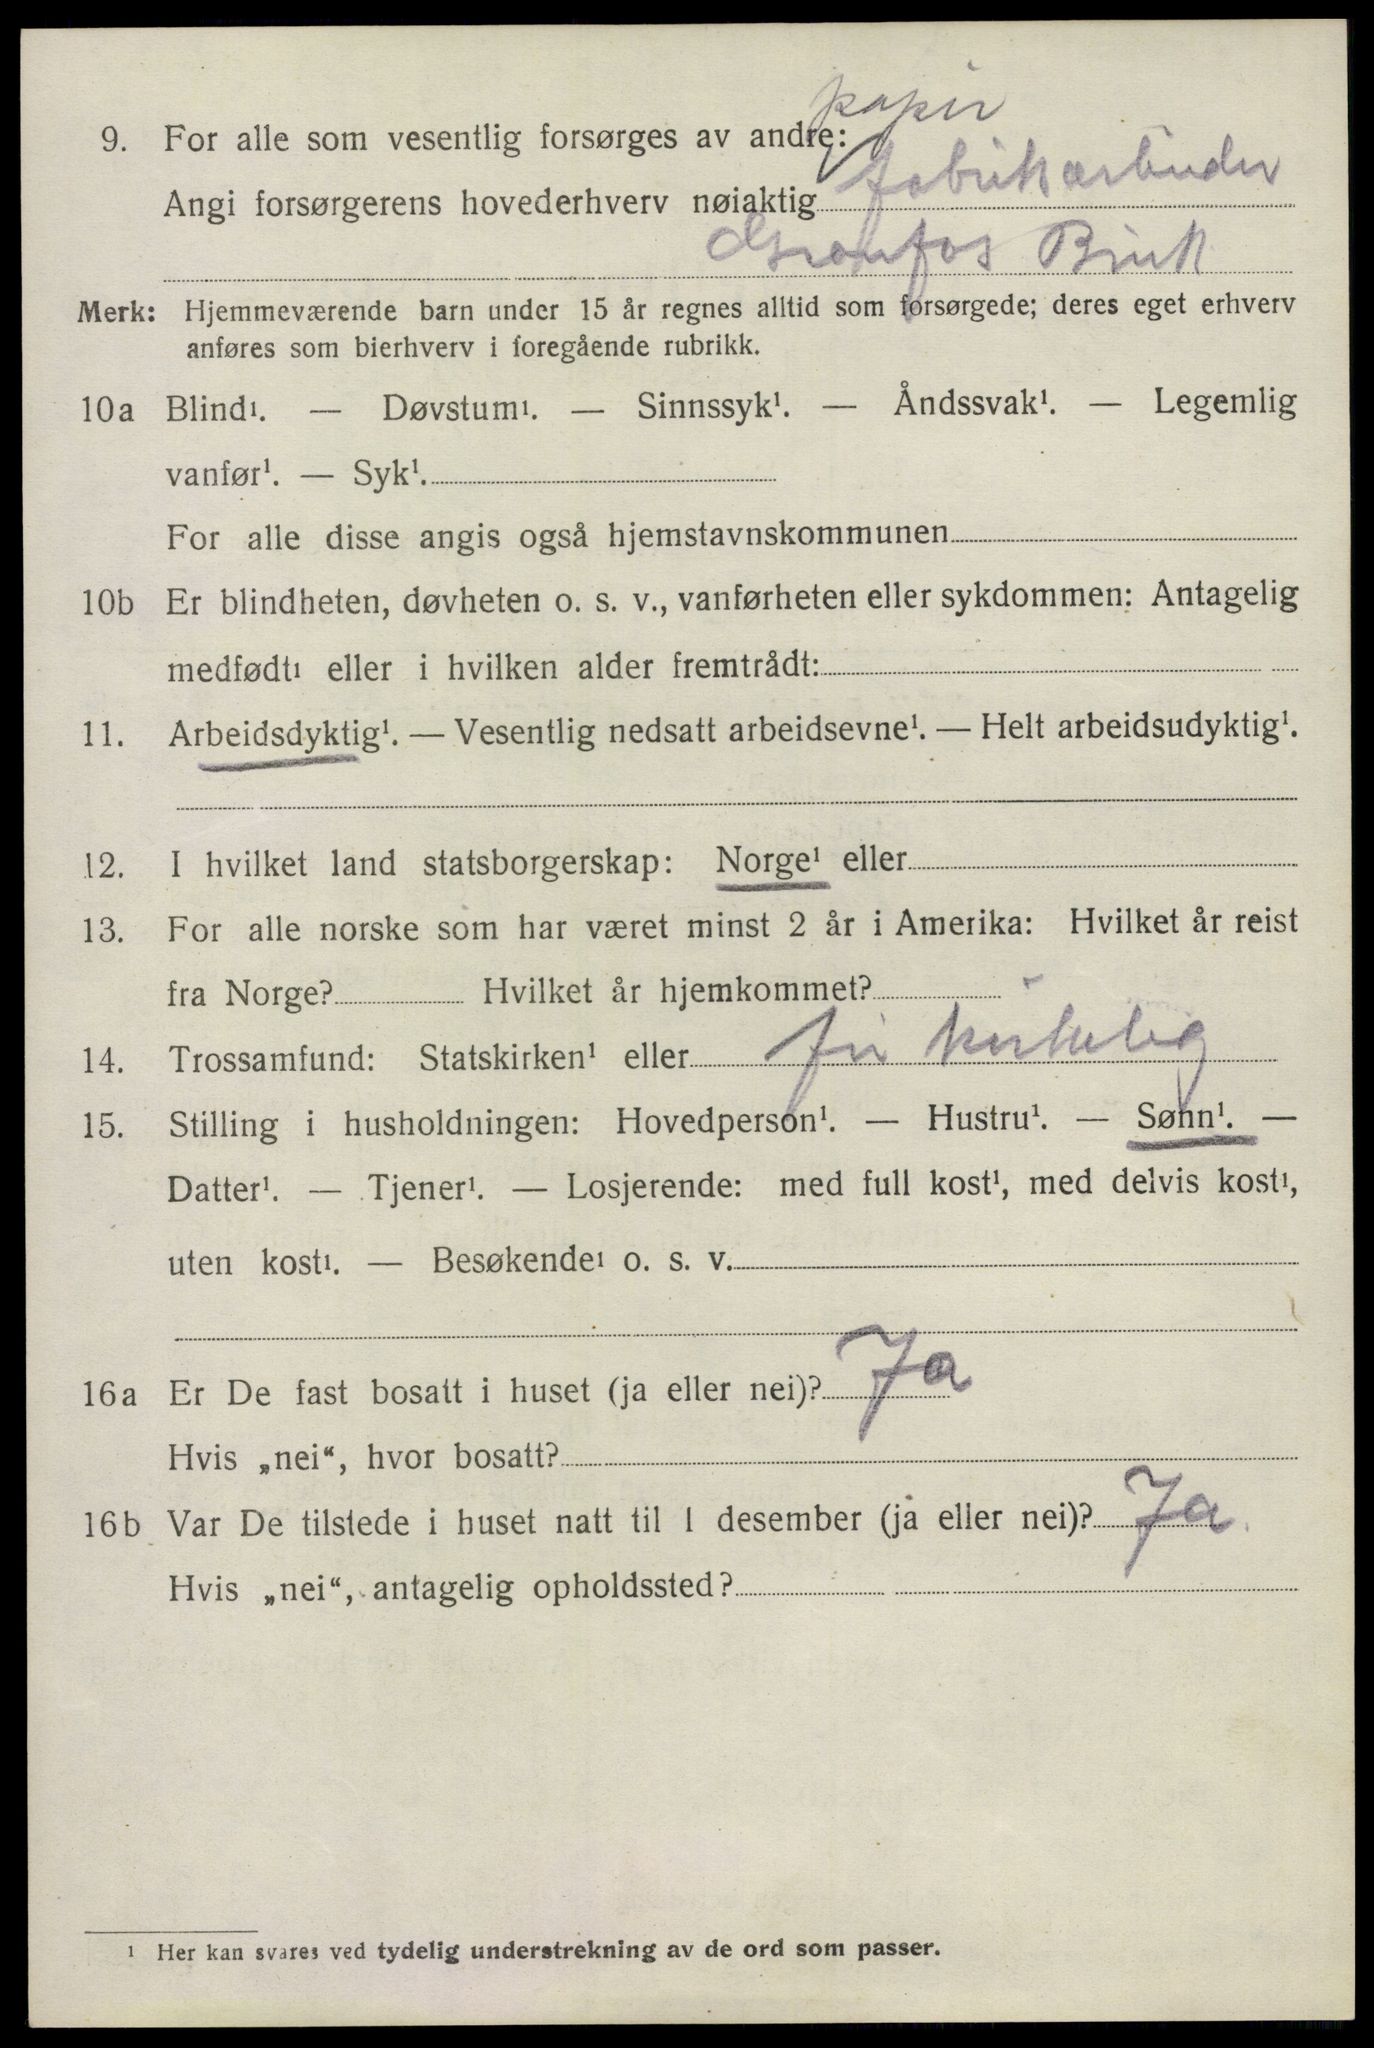 papir
9. For alle som vesentlig forsørges av andre:
Angi forsørgerens hovederhverv nøiaktig fabrikarbeider
Granfos Bruk
Merk: Hjemmeværende barn under 15 år regnes alltid som forsørgede; deres eget erhverv
anføres som bierhverv i foregående rubrikk.
10a Blind¹. — Døvstum¹. — Sinnssyk¹. — Åndssvak¹. — Legemlig
vanfør¹. — Syk¹.
For alle disse angis også hjemstavnskommunen
10b Er blindheten, døvheten o. s. v., vanførheten eller sykdommen: Antagelig
medfødt¹ eller i hvilken alder fremtrådt:
11. Arbeidsdyktig¹. — Vesentlig nedsatt arbeidsevne¹. — Helt arbeidsudyktig¹.
12. I hvilket land statsborgerskap: Norge¹ eller
13. For alle norske som har været minst 2 år i Amerika: Hvilket år reist
fra Norge? Hvilket år hjemkommet?
14. Trossamfund: Statskirken¹ eller fri kirkelig
15. Stilling i husholdningen: Hovedperson¹. — Hustru¹. — Sønn¹. —
Datter¹. — Tjener¹. — Losjerende: med full kost¹, med delvis kost¹,
uten kost¹. — Besøkende¹ o. s. v.
16a Er De fast bosatt i huset (ja eller nei)? Ja
Hvis „nei“, hvor bosatt?
16b Var De tilstede i huset natt til 1 desember (ja eller nei)? Ja
Hvis „nei“, antagelig opholdssted?
¹ Her kan svares ved tydelig understrekning av de ord som passer.